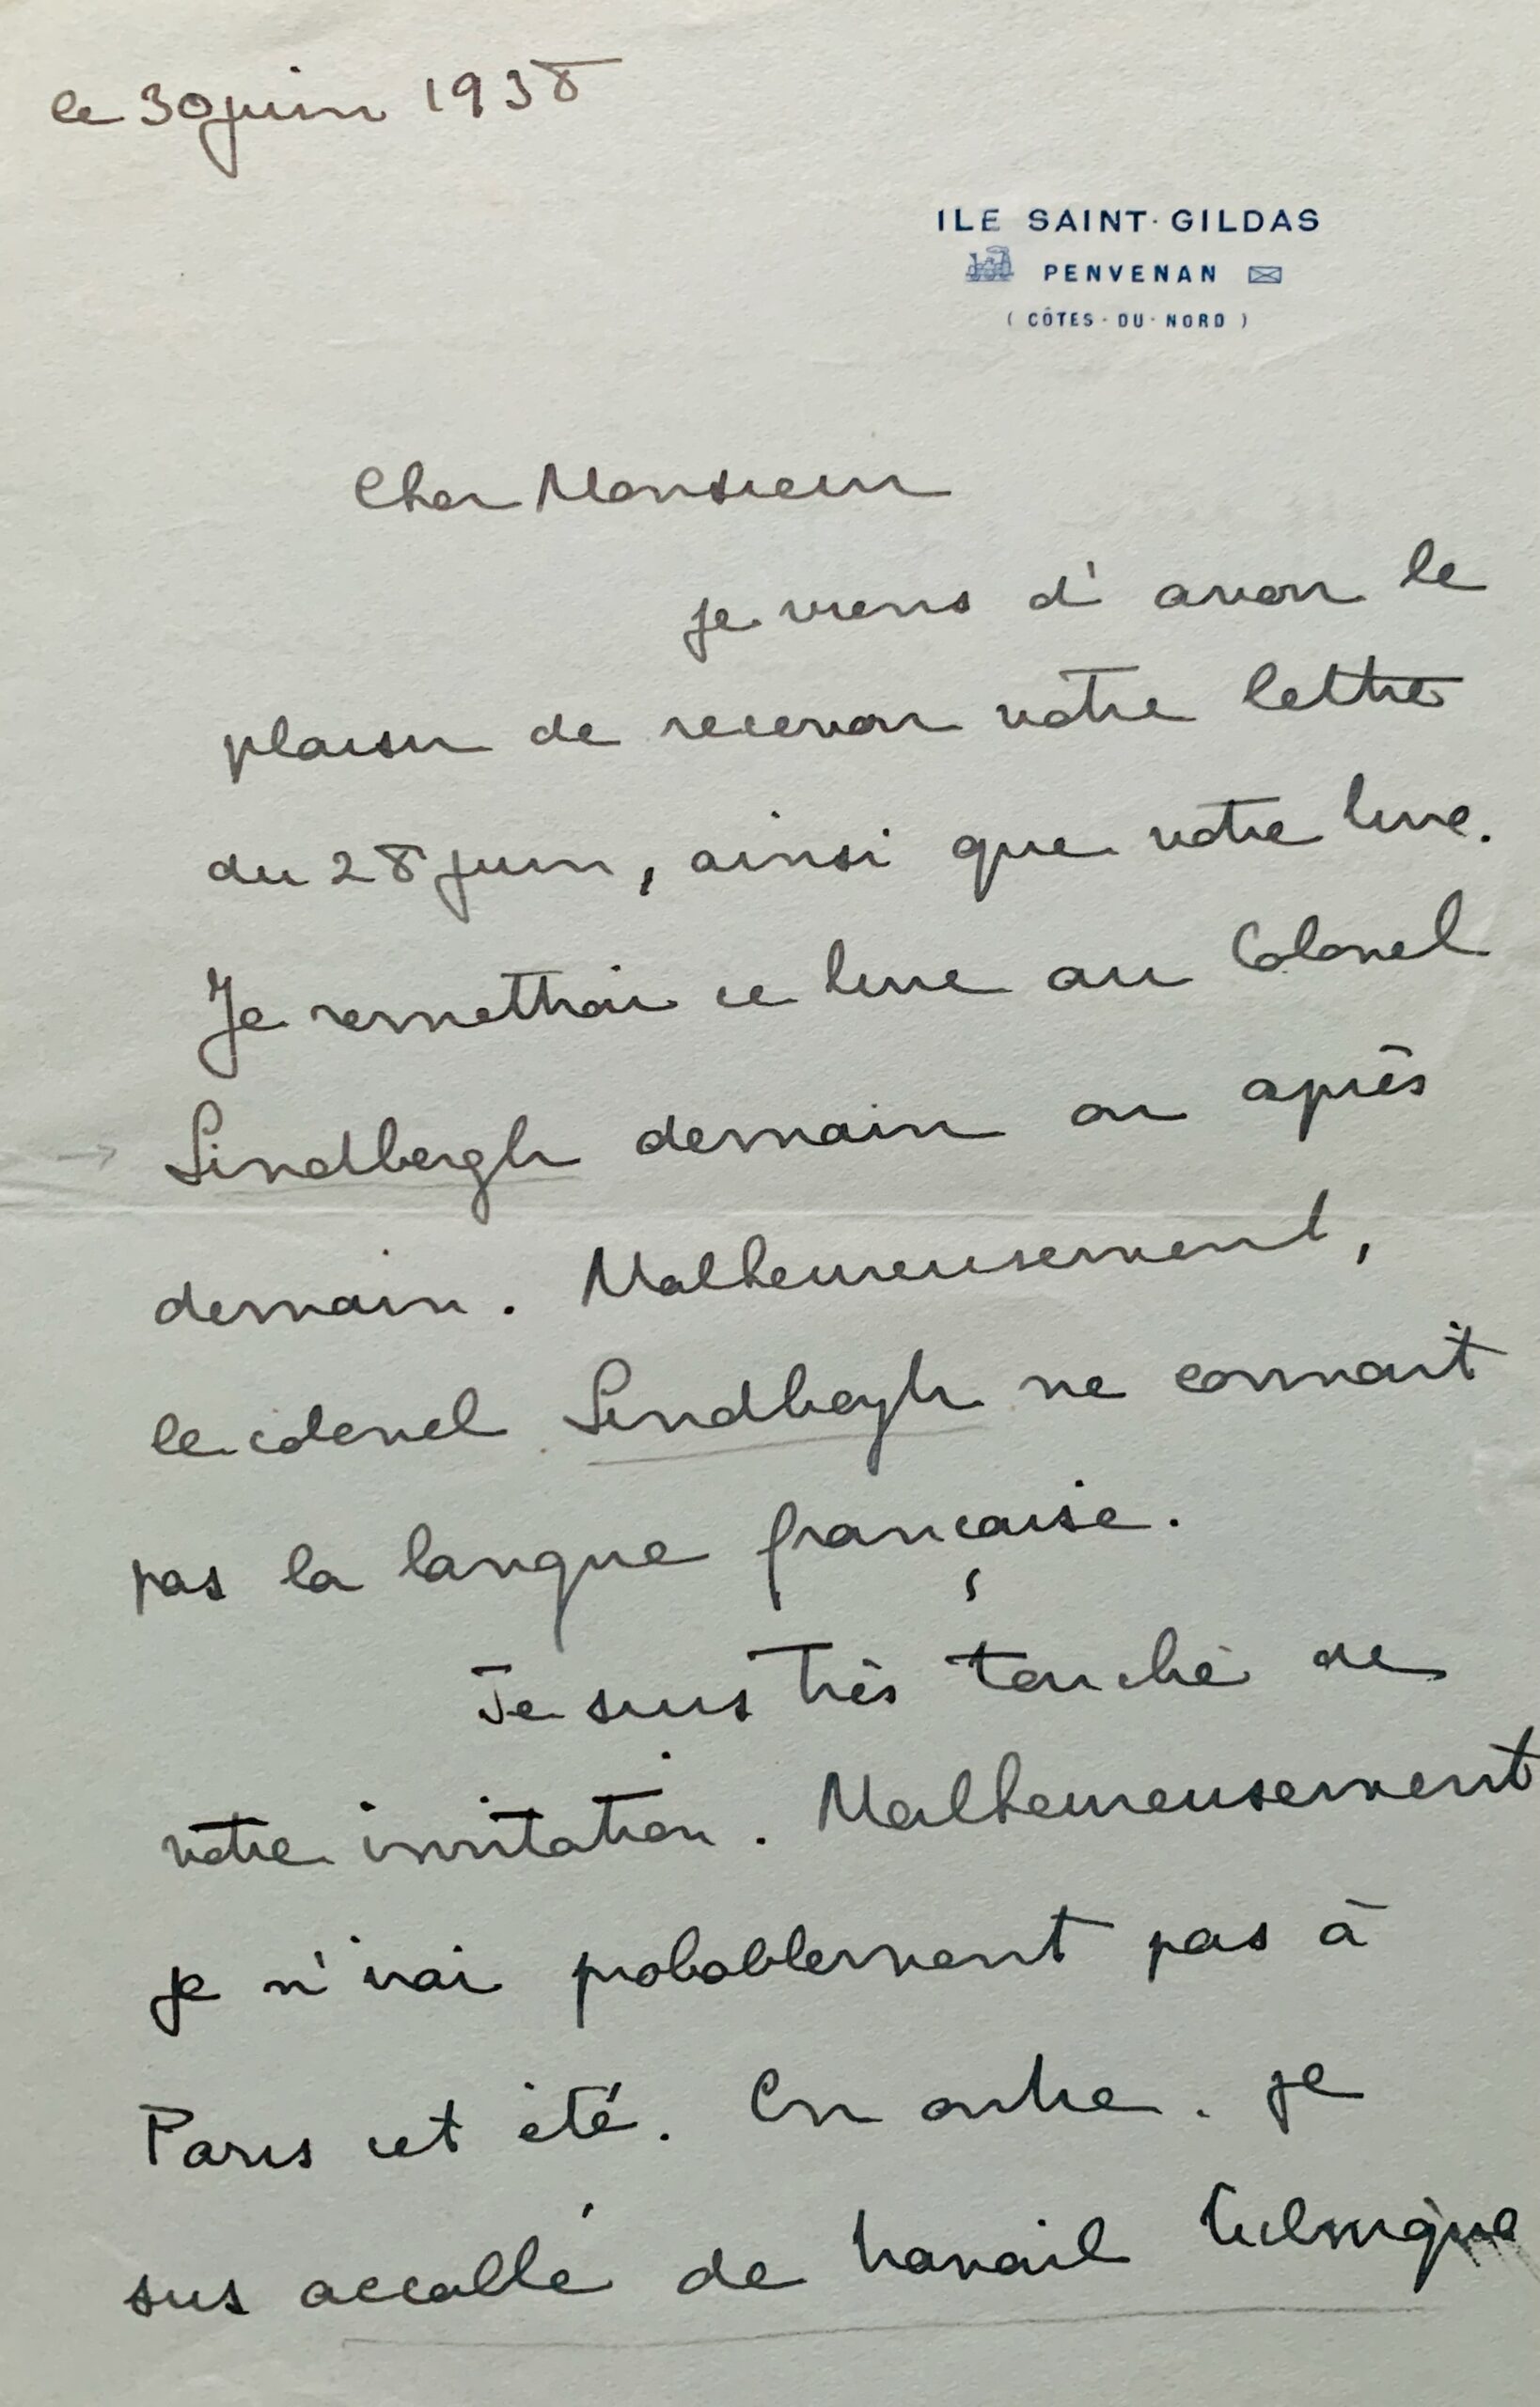 le 30 juin 1938
ILE SAINT·GILDAS
PENVENAN
( CÔTES·DU·NORD )
Cher Monsieur
je viens d'avoir le
plaisir de recevoir votre lettre
du 28 juin, ainsi que votre livre.
Je remettrai ce livre au Colonel
Lindbergh demain ou après
demain. Malheureusement,
le colonel Lindbergh ne connait
pas la langue française.
Je suis très touché de
votre invitation. Malheureusement
je n'irai probablement pas à
Paris cet été. En outre. je
suis accablé de travail technique